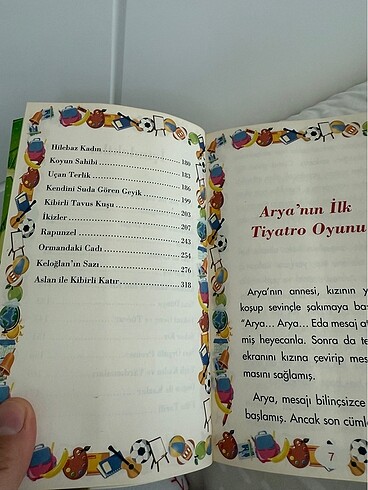 Hilebaz Kadın 180
Koyun Sahibi 183
Uçan Terlik 186
Kendini Suda Gören Geyik 199
Kibirli Tavus Kuşu 203
İkizler 207
Rapunzel 243
Ormandaki Cadı 254
Keloğlan'ın Sazı 276
Aslan ile Kibirli Katır 318
Arya'nın İlk
Tiyatro Oyunu
Arya'nın annesi, kızının y
koşup sevinçle şakımaya baş
"Arya... Arya... Eda mesaj at
miş heyecanla. Sonra da te
ekranını kızına çevirip mes
masını sağlamış.
Arya, mesajı bilinçsizce
başlamış. Ancak son cüml
7